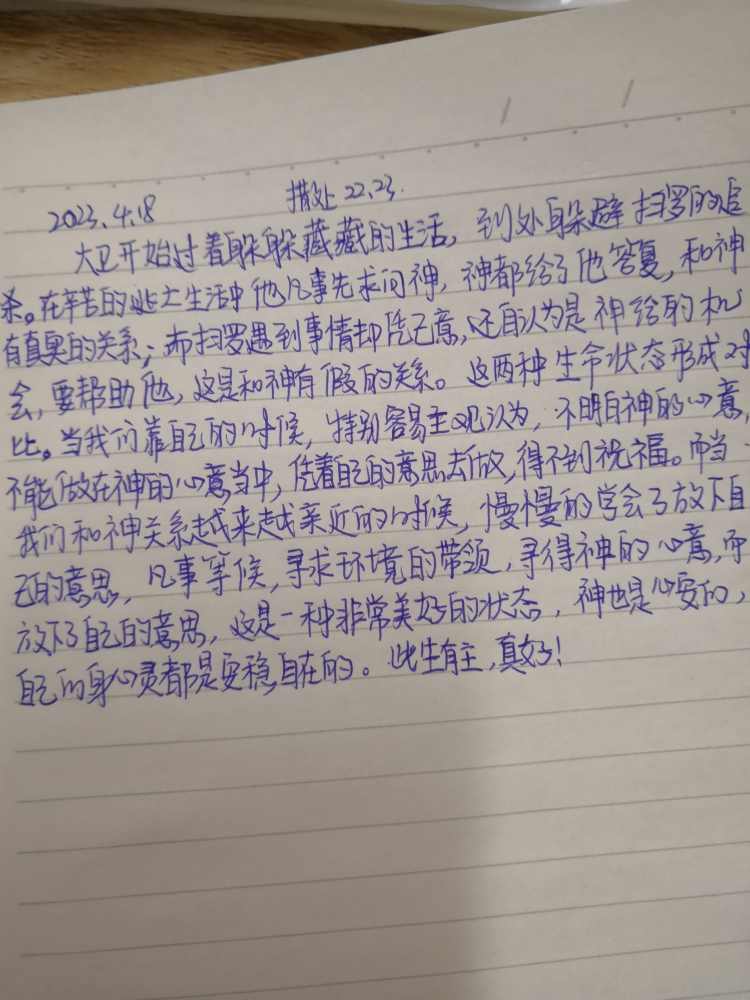 2023.4.18 撒上 22.23.
大卫开始过着躲躲藏藏的生活，到处躲避扫罗的追
杀。在辛苦的逃亡生活中他凡事先求问神，神都给了他答复，和神
有真实的关系；而扫罗遇到事情却凭己意，还自认为是神给的机
会，要帮助他，这是和神有假的关系。这两种生命状态形成对
比。当我们靠自己的时候，特别容易主观认为，不明白神的心意，
不能做在神的心意当中，凭着自己的意思去做，得不到祝福。而当
我们和神关系越来越亲近的时候，慢慢的学会了放下自
己的意思，凡事等候，寻求环境的带领，寻得神的心意，而
放下了自己的意思，这是一种非常美好的状态，神也是必要的，
自己的身心灵都是安稳自在的。此生有主，真好！